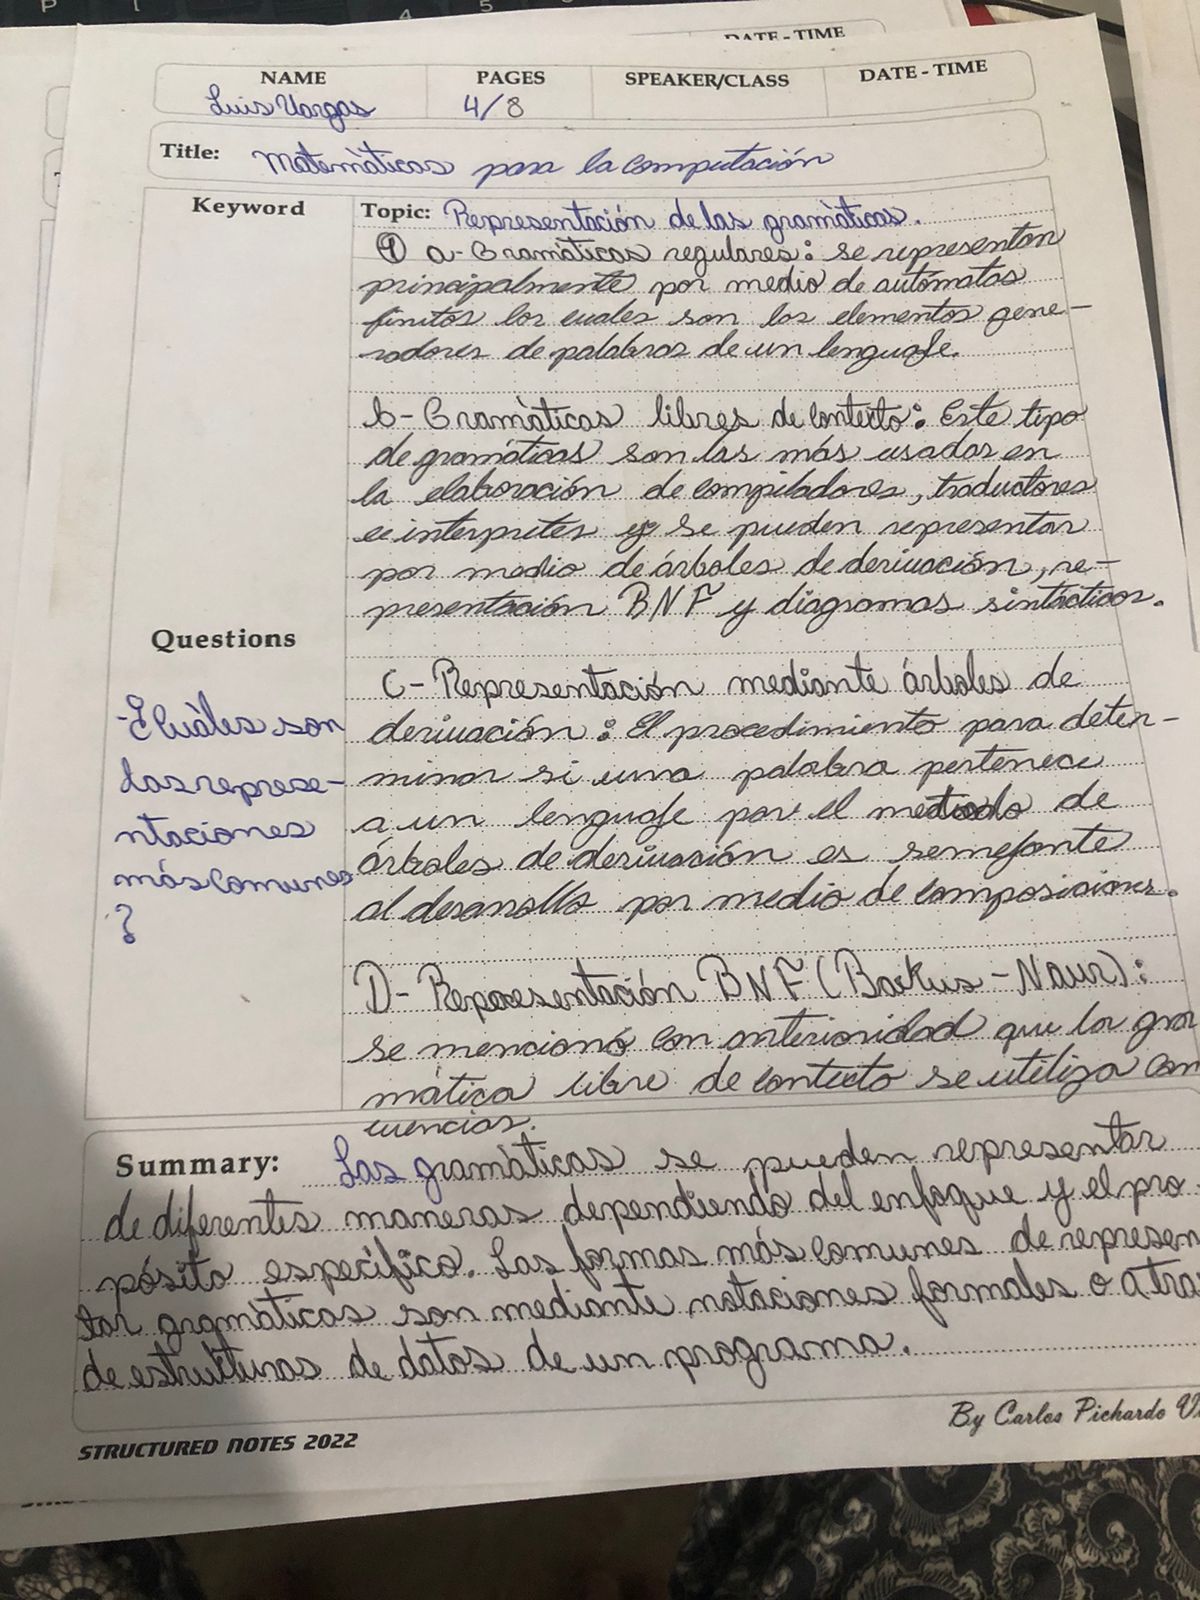 DATE - TIME
NAME PAGES SPEAKER/CLASS DATE - TIME
Luis Vargas 4/8
Title: Matemàticas para la computación
Keyword
Topic: Representación de las gramàticas.
④ a- Gramàticas regulares: se representan
principalmente por medio de autómatas
finitos los cuales son los elementos gene-
radores de palabras de un lenguaje.
b- Gramàticas libres de contexto: Este tipo
de gramáticas son las más usadas en
la elaboración de compiladores, traductores
e interpretes y se pueden representar
por medio de árboles de derivación, re-
presentación BNF y diagramas sintácticos.
Questions
-¿Cuàles son
las represe-
ntaciones
más comunes
?
C- Representación mediante árboles de
derivación: El procedimiento para deter-
minar si una palabra pertenece
a un lenguaje por el metodo de
árboles de derivación es semejante
al desarrollo por medio de composiciones.
D- Representación BNF (Backus-Naur):
se mencionó con anterioridad que la gra
mática libre de contexto se utiliza con
cuencias.
Summary: Las gramàticas se pueden representar
de diferentes maneras dependiendo del enfoque y el pro
pósito específico. Las formas más comunes de represen
tar gramáticas son mediante notaciones formales o a tra
de estructuras de datos de un programa.
By Carlos Pichardo V
STRUCTURED NOTES 2022